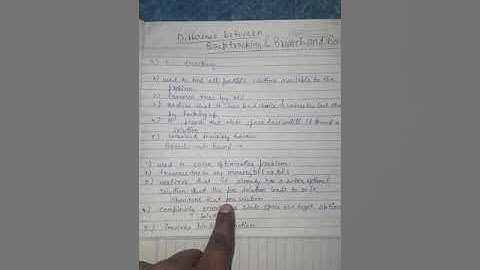 Difference between
Backtracking & Branch and Bo
Back tracking
1) used to find all possible solutions available to the
problem.
2) traverse tree by DFS
3) realize that it has bad choice & undoes the last choice
by backing up.
4) it search the state space tree until it found a
solution
5) involves feasibility function.
Branch and Bound
1) used to solve optimization problem
2) traverse tree in any manner, DFS or BFS
3) realizes that it already has a better optimal
solution that the pre solution leads to so it
abandons that pre solution
4) completely searches state space tree to get optimal
solution
5) involves bounding function